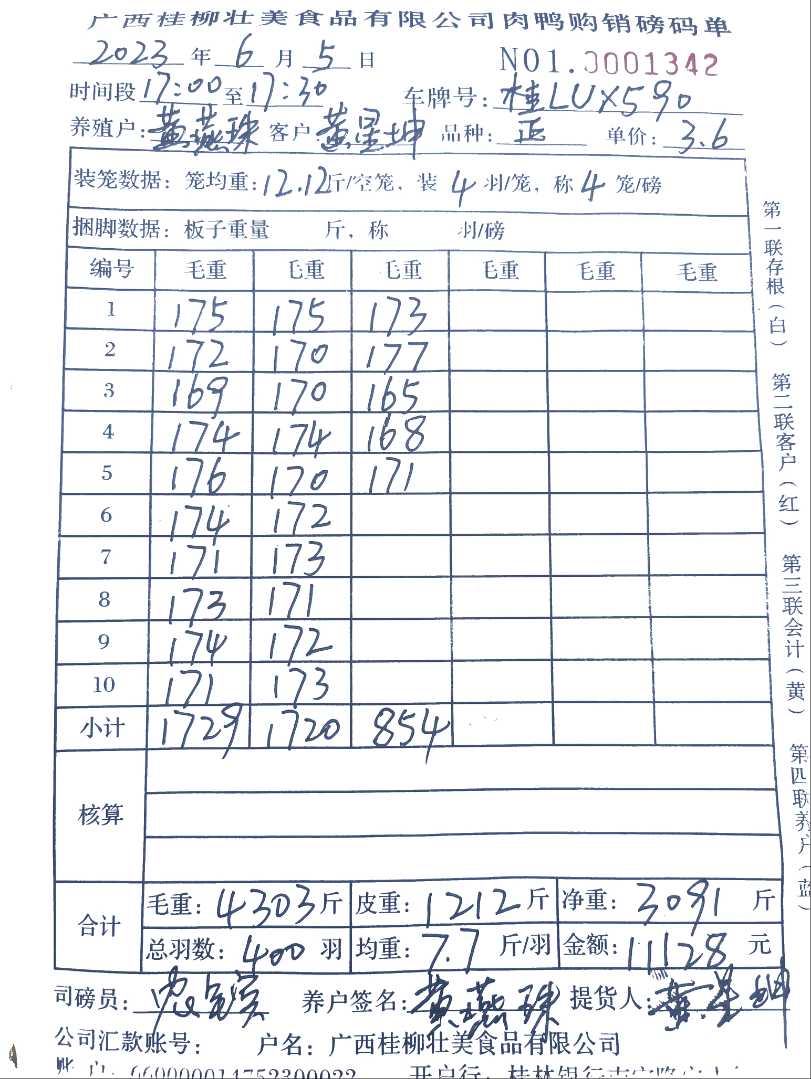 广西桂柳壮美食品有限公司肉鸭购销磅码单
2023 年 6 月 5 日 NO1.0001342
时间段 17:00 至 17:30 车牌号: 桂LUX590
养殖户: 黄燕珠 客户: 黄星坤 品种: 正 单价: 3.6
装笼数据: 笼均重: 12.12 斤/空笼, 装 4 羽/笼, 称 4 笼/磅
捆脚数据: 板子重量 斤, 称 羽/磅
编号 毛重 毛重 毛重 毛重 毛重 毛重
1 175 175 173
2 172 170 177
3 169 170 165
4 174 174 168
5 176 170 171
6 174 172
7 171 173
8 173 171
9 174 172
10 171 173
小计 1729 1720 854
核算
合计 毛重: 4303 斤 皮重: 1212 斤 净重: 3091 斤
总羽数: 400 羽 均重: 7.7 斤/羽 金额: 11128 元
司磅员: 养户签名: 黄燕珠 提货人: 黄星坤
公司汇款账号: 户名: 广西桂柳壮美食品有限公司
账户: 660000014752300022 开户行: 桂林银行
第一联存根(白) 第二联客户(红) 第三联会计(黄) 第四联养户(蓝)